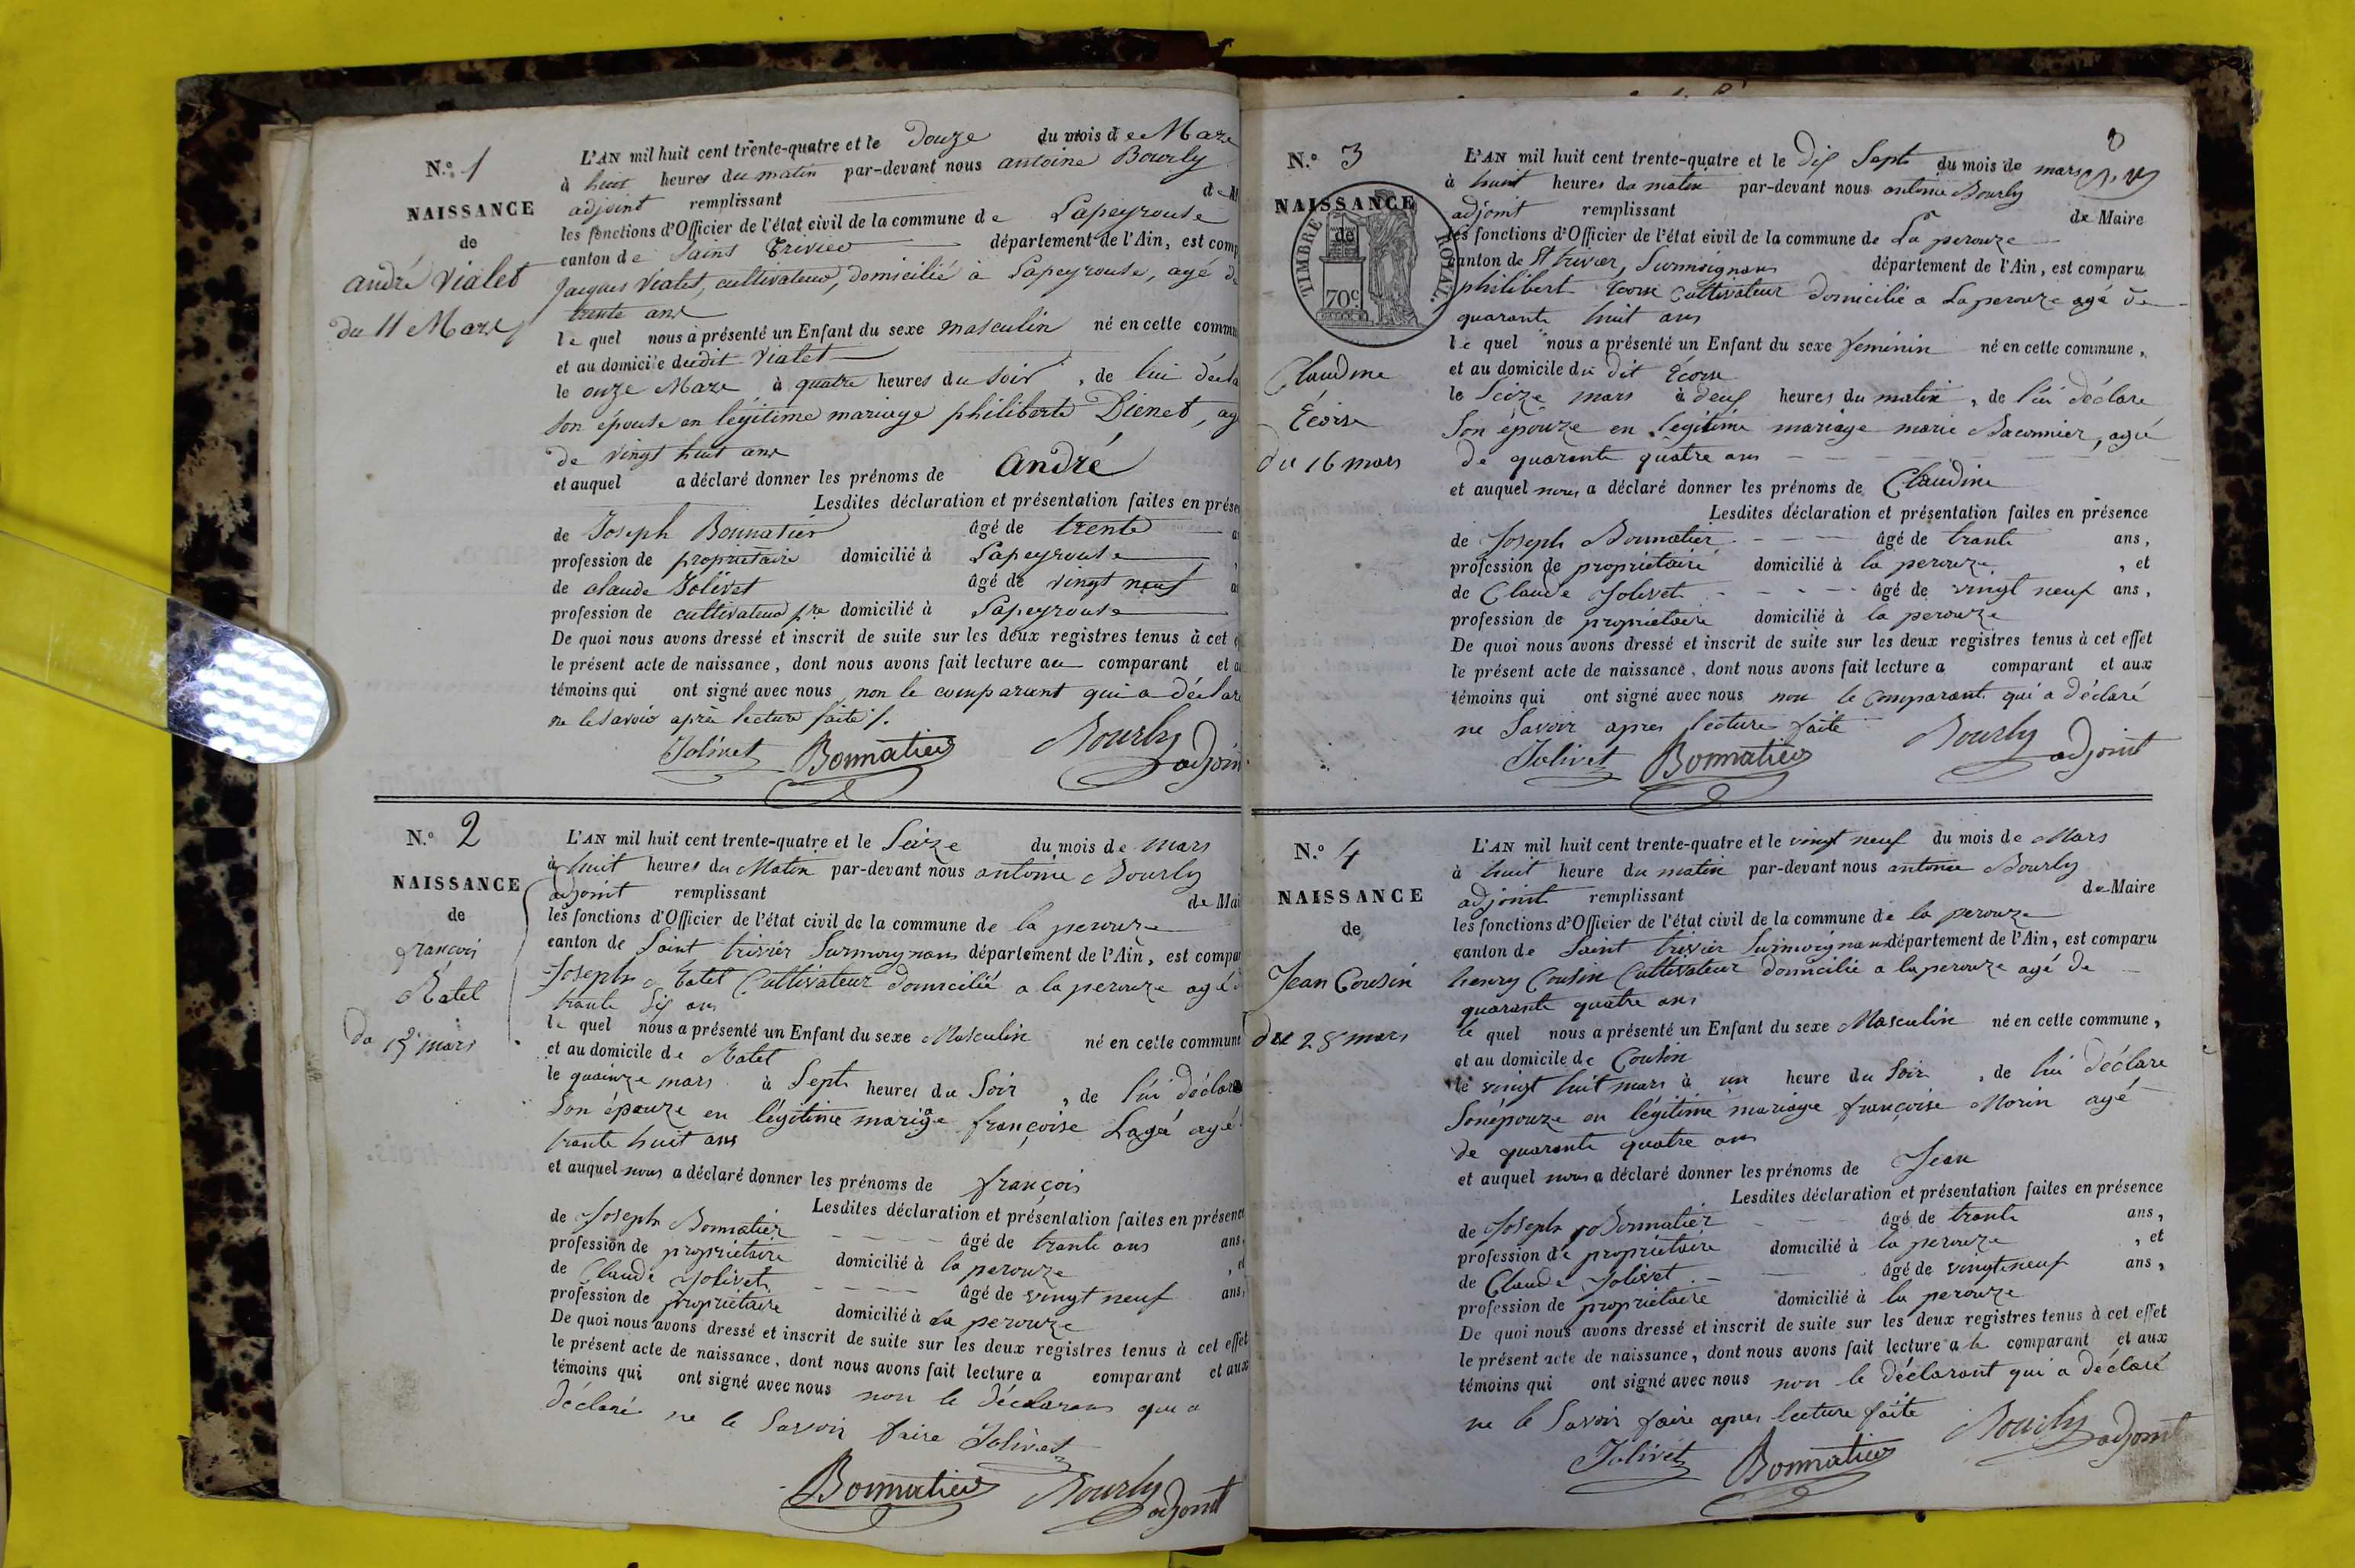 N.° 1
NAISSANCE
de
andré Vialet
du 11 Mars
L'AN mil huit cent trente-quatre et le Douze du mois de Mars
à huit heures du matin par-devant nous antoine Bourly
adjoint remplissant de M
les fonctions d'Officier de l'état civil de la commune de Lapeyrouse
canton de Saint Trivier département de l'Ain, est comp
Jacques Vialet, cultivateur, domicilié à Lapeyrouse, agé de
trente ans
le quel nous a présenté un Enfant du sexe masculin né en cette commu
et au domicile dudit Vialet
le onze Mars à quatre heures du soir, de lui décla
son épouse en légitime mariage philiberte Dienet, ag
de vingt huit ans
et auquel a déclaré donner les prénoms de andré
Lesdites déclaration et présentation faites en prése
de Joseph Bonnatier âgé de trente a
profession de propriétaire domicilié à Lapeyrouse
de claude Jolivet âgé de vingt neuf a
profession de cultivateur pre domicilié à Lapeyrouse
De quoi nous avons dressé et inscrit de suite sur les deux registres tenus à cet e
le présent acte de naissance, dont nous avons fait lecture au comparant et a
témoins qui ont signé avec nous, non le comparant qui a déclaré
ne le savoir après lecture faite /.
Jolivet Bonnatier Bourly adjoin
N.° 2
NAISSANCE
de
françois
Ratel
du 15 mars
L'AN mil huit cent trente-quatre et le Seize du mois de mars
à huit heures du Matin par-devant nous antoine Bourly
adjoint remplissant de Mai
les fonctions d'Officier de l'état civil de la commune de la perouze
canton de Saint trivier Surmoignans département de l'Ain, est compar
Joseph Ratel Cultivateur domicilié a la perouze agé d
trante Six ans
le quel nous a présenté un Enfant du sexe Masculin né en cette commune
et au domicile de Ratel
le quainze mars à Sept heures du Soir, de lui déclare
Son épouze en légitime mariage françoise Lagé agé
trante huit ans
et auquel nous a déclaré donner les prénoms de françois
Lesdites déclaration et présentation faites en présenc
de Joseph Bonnatier âgé de trante ans ans,
profession de propriétaire domicilié à la perouze, et
de Claude Jolivet âgé de vingt neuf ans,
profession de propriétaire domicilié à La perouze
De quoi nous avons dressé et inscrit de suite sur les deux registres tenus à cet effet
le présent acte de naissance, dont nous avons fait lecture a comparant et aux
témoins qui ont signé avec nous non le déclarans que a
déclaré ne le Savoir faire Jolivet
Bonnatier Bourly adjoint
N.° 3
NAISSANCE
de
TIMBRE ROYAL.
70c
Claudine
Écoise
du 16 mars
L'AN mil huit cent trente-quatre et le dix Sept du mois de mars
à huit heures du matin par-devant nous antoine Bourly
adjoint remplissant de Maire
les fonctions d'Officier de l'état civil de la commune de La perouze
canton de St trivier, Surmoignans département de l'Ain, est comparu
philibert Ecoise Cultivateur domicilié a La perouze agé de
quarante huit ans
le quel nous a présenté un Enfant du sexe feminin né en cette commune,
et au domicile du dit Écoise
le Seize mars à deux heures du matin, de lui déclare
Son épouze en légitime mariage marie Maconnier, agé
de quarante quatre ans
et auquel nous a déclaré donner les prénoms de Claudine
Lesdites déclaration et présentation faites en présence
de Joseph Bonnatier âgé de trante ans,
profession de propriétaire domicilié à la perouze, et
de Claude Jolivet âgé de vingt neuf ans,
profession de propriétaire domicilié à la perouze
De quoi nous avons dressé et inscrit de suite sur les deux registres tenus à cet effet
le présent acte de naissance, dont nous avons fait lecture a comparant et aux
témoins qui ont signé avec nous non le Comparant qui a déclaré
ne Savoir apres lecture faite
Jolivet Bonnatier Bourly adjoint
N.° 4
NAISSANCE
de
Jean Cousin
du 28 mars
L'AN mil huit cent trente-quatre et le vingt neuf du mois de Mars
à huit heure du matin par-devant nous antonie Bourly
adjoint remplissant de Maire
les fonctions d'Officier de l'état civil de la commune de la perouze
canton de Saint trivier Surmoignans département de l'Ain, est comparu
henry Cousin Cultivateur domicilié a la perouze agé de
quarante quatre ans
le quel nous a présenté un Enfant du sexe Masculin né en cette commune,
et au domicile de Cousin
le vingt huit mars à un heure du Soir, de lui déclare
Son épouze en légitime mariage françoise Morin agé
de quarante quatre ans
et auquel nous a déclaré donner les prénoms de Jean
Lesdites déclaration et présentation faites en présence
de Joseph Bonnatier âgé de trante ans,
profession de propriétaire domicilié à la perouze, et
de Claude Jolivet âgé de vingt neuf ans,
profession de propriétaire domicilié à la perouze
De quoi nous avons dressé et inscrit de suite sur les deux registres tenus à cet effet
le présent acte de naissance, dont nous avons fait lecture a le comparant et aux
témoins qui ont signé avec nous non le déclarant qui a déclaré
ne le Savoir faire apres lecture faite
Jolivet Bonnatier Bourly adjoint